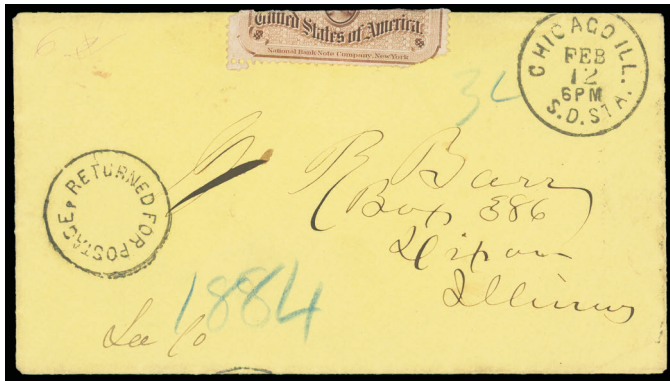 United States of America.
National Bank Note Company, New York
CHICAGO ILL.
FEB
12
6PM
S.D. STA.
RETURNED FOR POSTAGE
R Barr
Box 386
Dixon
Illinois
1884
Lee Co